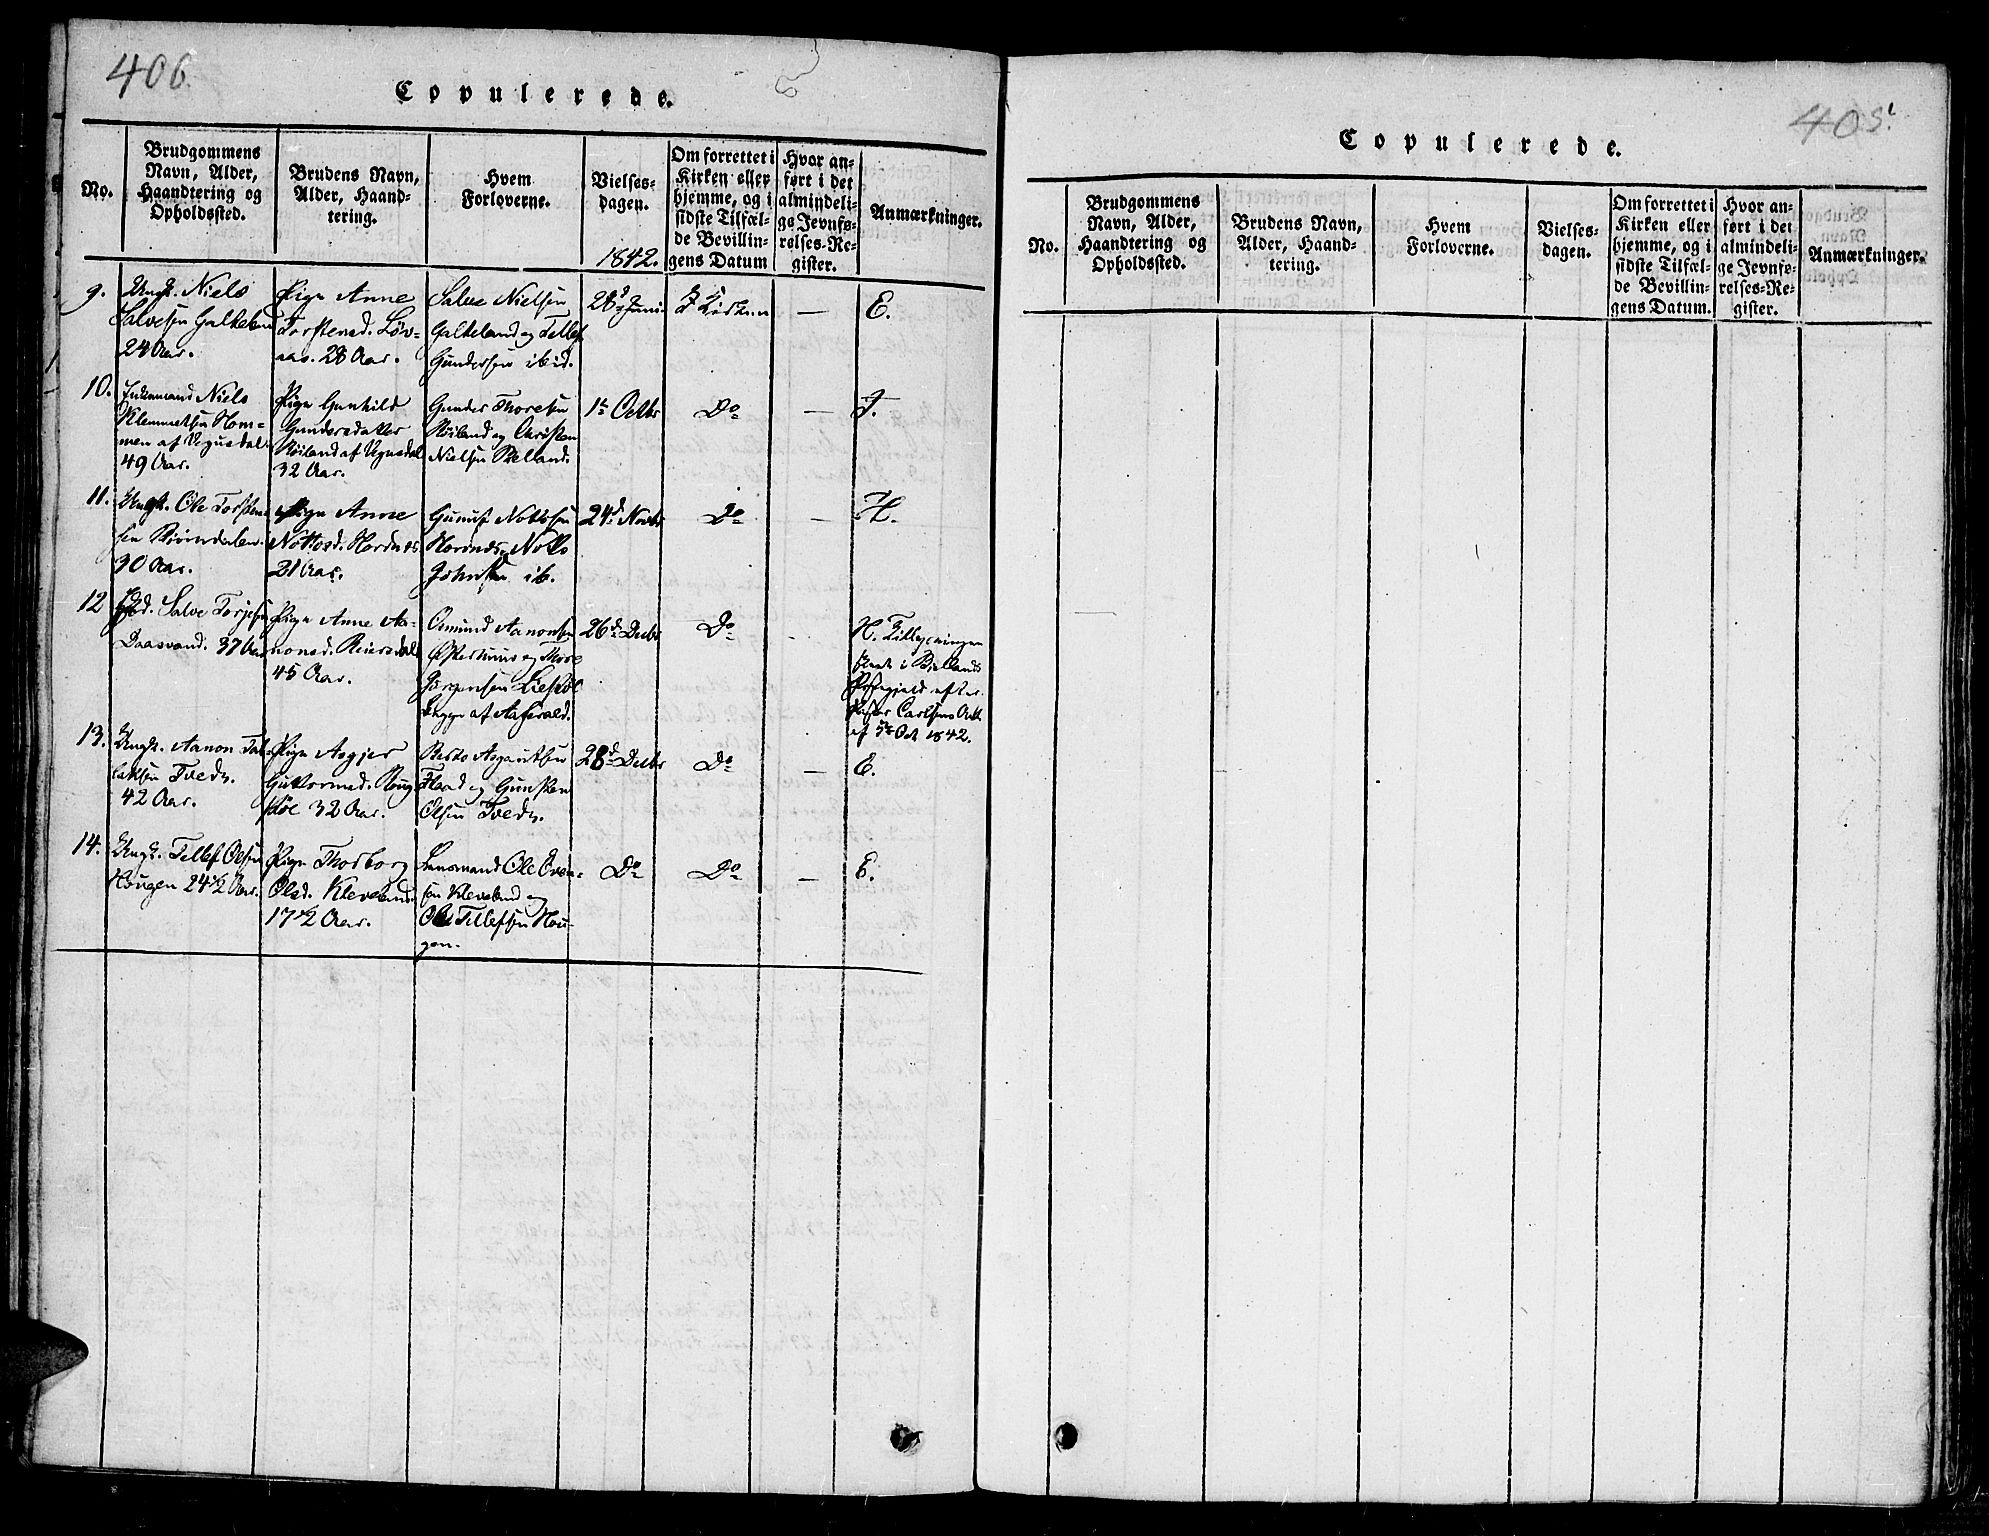 406.
Copulerede.
No.
Brudgommens
Navn, Alder,
Haandtering og
Opholdssted.
Brudens Navn,
Alder, Haand-
tering.
Hvem
Forloverne.
Vielses-
dagen.
1842.
Om forrettet i
Kirken eller
hjemme, og i
sidste Tilfæl-
de Bevillin-
gens Datum
Hvor an-
ført i det
almindeli-
ge Jevnfø-
relses-Re-
gister.
Anmærkninger.
9.
Ungk. Niels
Salvesen Galteland
24 Aar.
Pige Anne
Torstensd. Løv-
aas. 28 Aar.
Salve Nielsen
Galteland og Tellef
Gundersen ibid.
28d Juni
I Kirken
—
E.
10.
Enkemand Niels
Klemmetsen Hom-
men af Vegusdal
49 Aar.
Pige Gunhild
Gundersdatter
Røiland af Vegusdal
32 Aar.
Gunder Thoresen
Røiland og Christen
Nielsen
1te Octbr
Do
—
F.
11.
Ungk. Ole Torsten-
sen
30 Aar.
Pige Anne
Nottosd. Hordnes
21 Aar.
Gunuf Nottosen
Hornes, Notto
Johnsen ib.
24d Novbr
Do
—
H.
12
Salve Torjesen
Daasvand. 37 Aar
Pige Anne Aa-
nonsd. Reiersdal
45 Aar.
Omund Aanonsen
og Thore
Jørgensen
af Aaserald.
26d Decbr
Do
H. Tillysningen
skeet i Bjellands
Præstegjeld efter
Pastor Carlsens Att.
af 5te Oct 1842.
13.
Ungk. Aanon Tal-
laksen Tveds.
42 Aar.
Pige Asgjer
Guttormsd. Houg-
støe 32 Aar.
Asgautsen
Flaad og Gunsten
Olsen Tveds.
28d Decbr
Do
—
E.
14.
Ungk. Tellef Olsen
Hougen 24 1/2 Aar.
Pige Thorborg
Olsd. Kleveland
17 1/2 Aar.
Lensmand Ole Even-
sen Kleveland og
Ole Tellefsen Hou-
gen.
Do
Do
—
E.
405.
Copulerede.
No.
Brudgommens
Navn, Alder,
Haandtering og
Opholdssted.
Brudens Navn,
Alder, Haand-
tering.
Hvem
Forloverne.
Vielses-
dagen.
Om forrettet i
Kirken eller
hjemme, og i
sidste Tilfæl-
de Bevillin-
gens Datum.
Hvor an-
ført i det
almindeli-
ge Jevnfø-
relses-Re-
gister.
Anmærkninger.